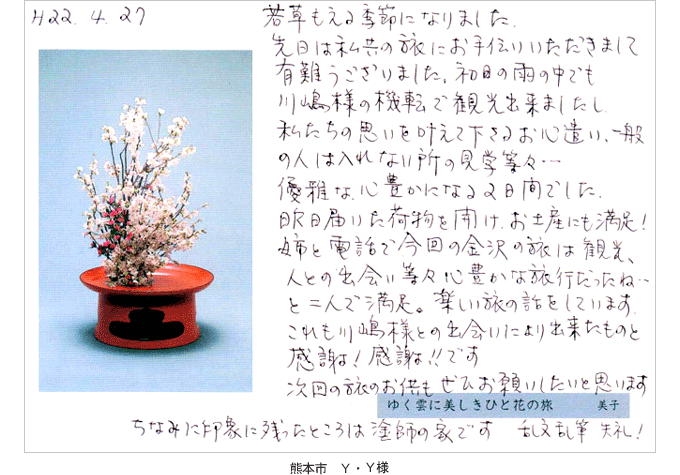 H22.4.27
若草もえる季節になりました。
先日は私共の旅にお手伝いいただきまして
有難うございました。初日の雨の中でも
川嶋様の機転で観光出来ましたし
私たちの思いを叶えて下さるお心遣い、一般
の人は入れない所の見学等々…
優雅な、心豊かになる2日間でした。
昨日届いた荷物を開け、お土産にも満足!
姉と電話で今回の金沢の旅は観光、
人との出会い等々心豊かな旅行だったね…
と二人で満足。楽しい旅の話をしています。
これも川嶋様との出会いにより出来たものと
感謝!感謝!!です
次回の旅のお供もぜひお願いしたいと思います
ゆく雲に美しきひと花の旅 美子
ちなみに印象に残ったところは塗師の家です 乱文乱筆 失礼!
熊本市 Y・Y様